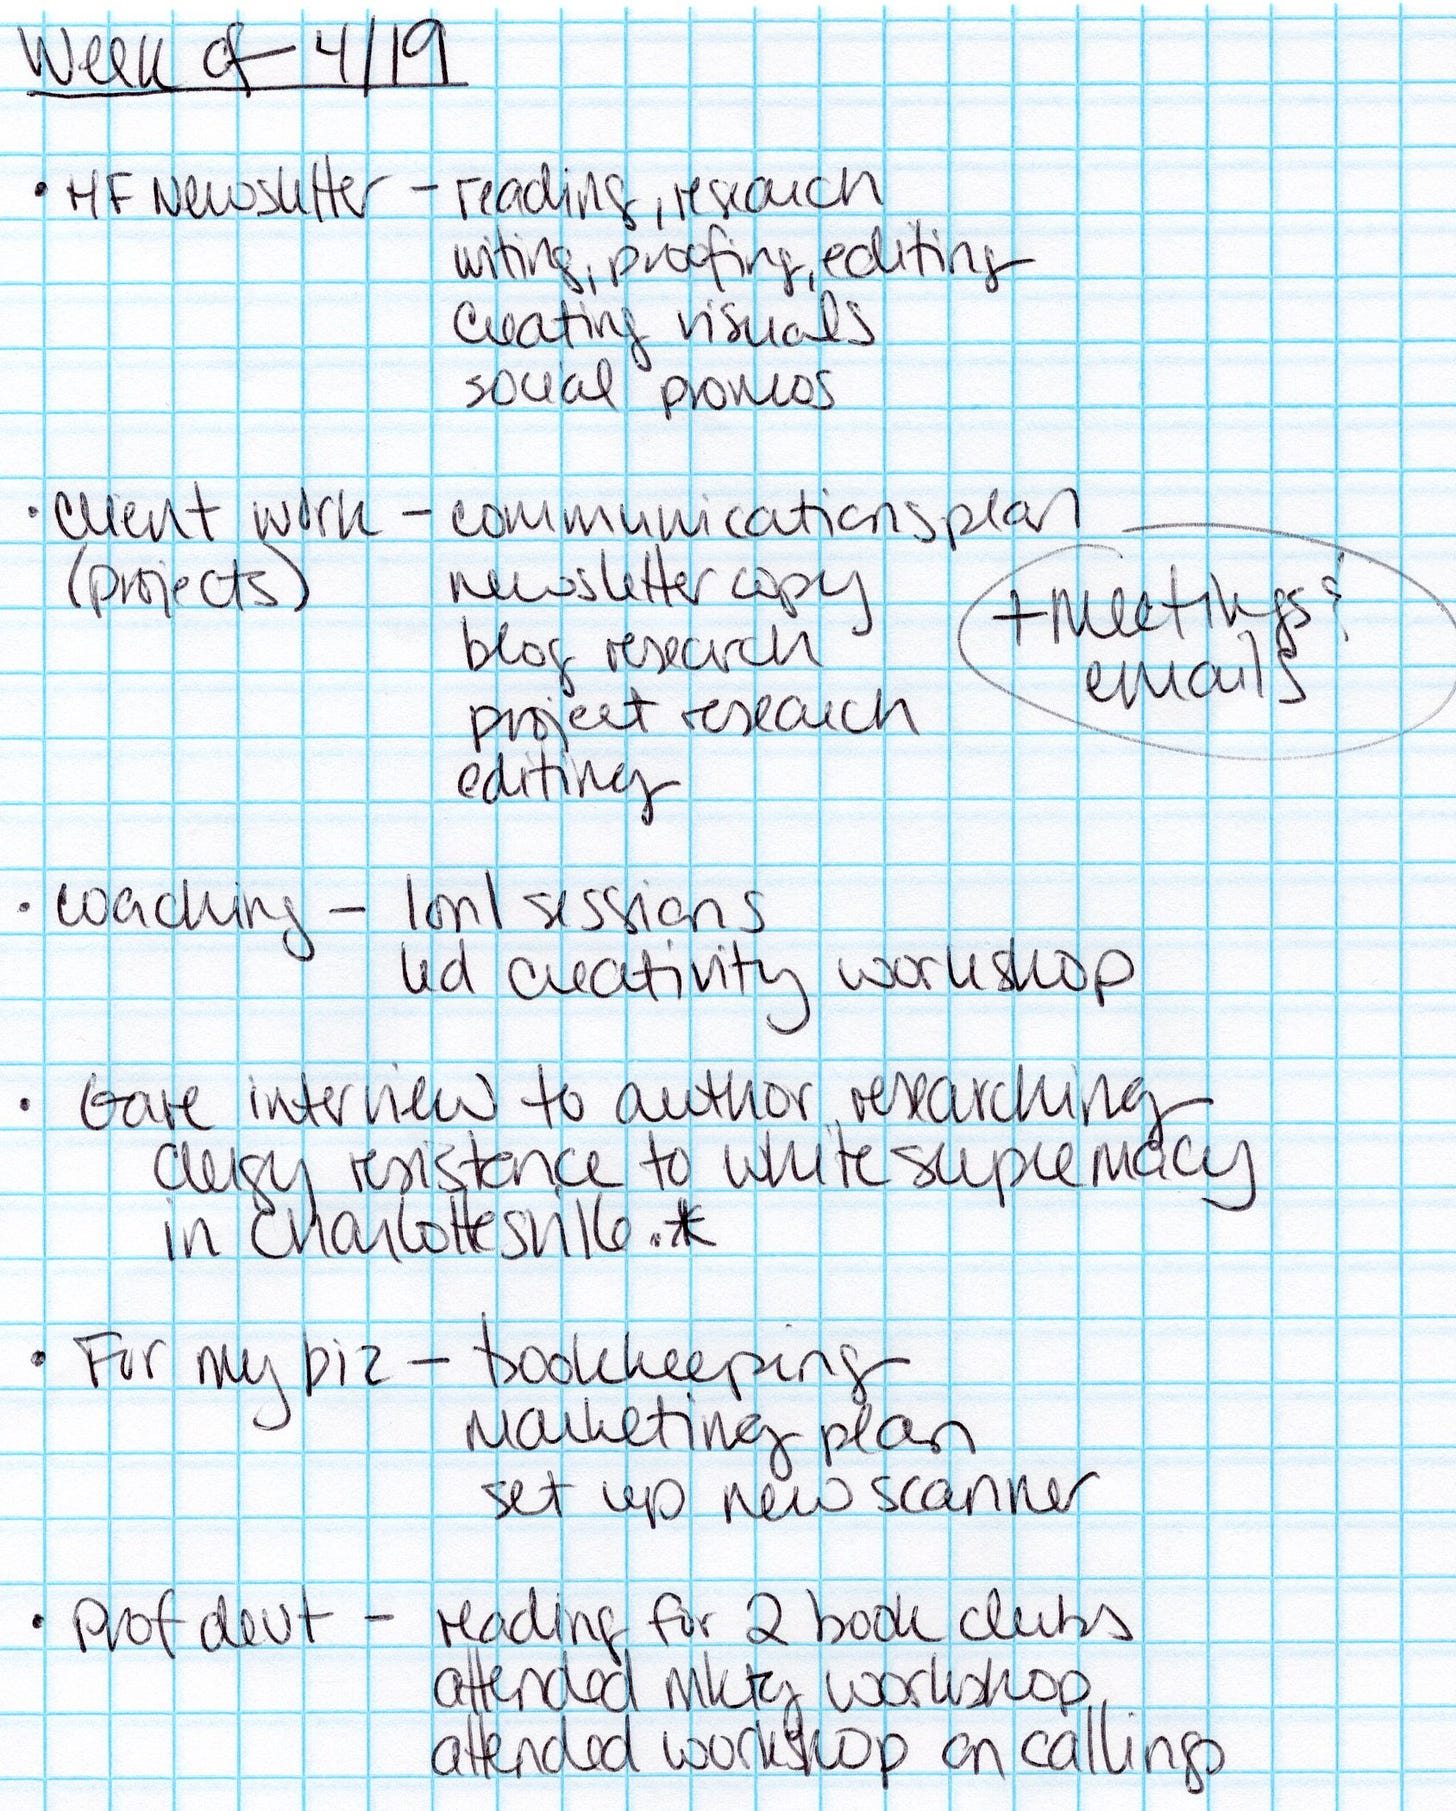 Week of 4/19
• MF Newsletter - reading, research
writing, proofing, editing
creating visuals
social promos
• Client work - communications plan
(projects) newsletter copy
+ meetings &
emails
blog research
project research
editing
• Coaching - 1on1 sessions
led creativity workshop
• Gave interview to author researching
clergy resistence to white supremacy
in Charlottesville.*
• For my biz - bookkeeping
marketing plan
set up new scanner
• Prof devt - reading for 2 book clubs
attended mktg workshop
attended workshop on callings